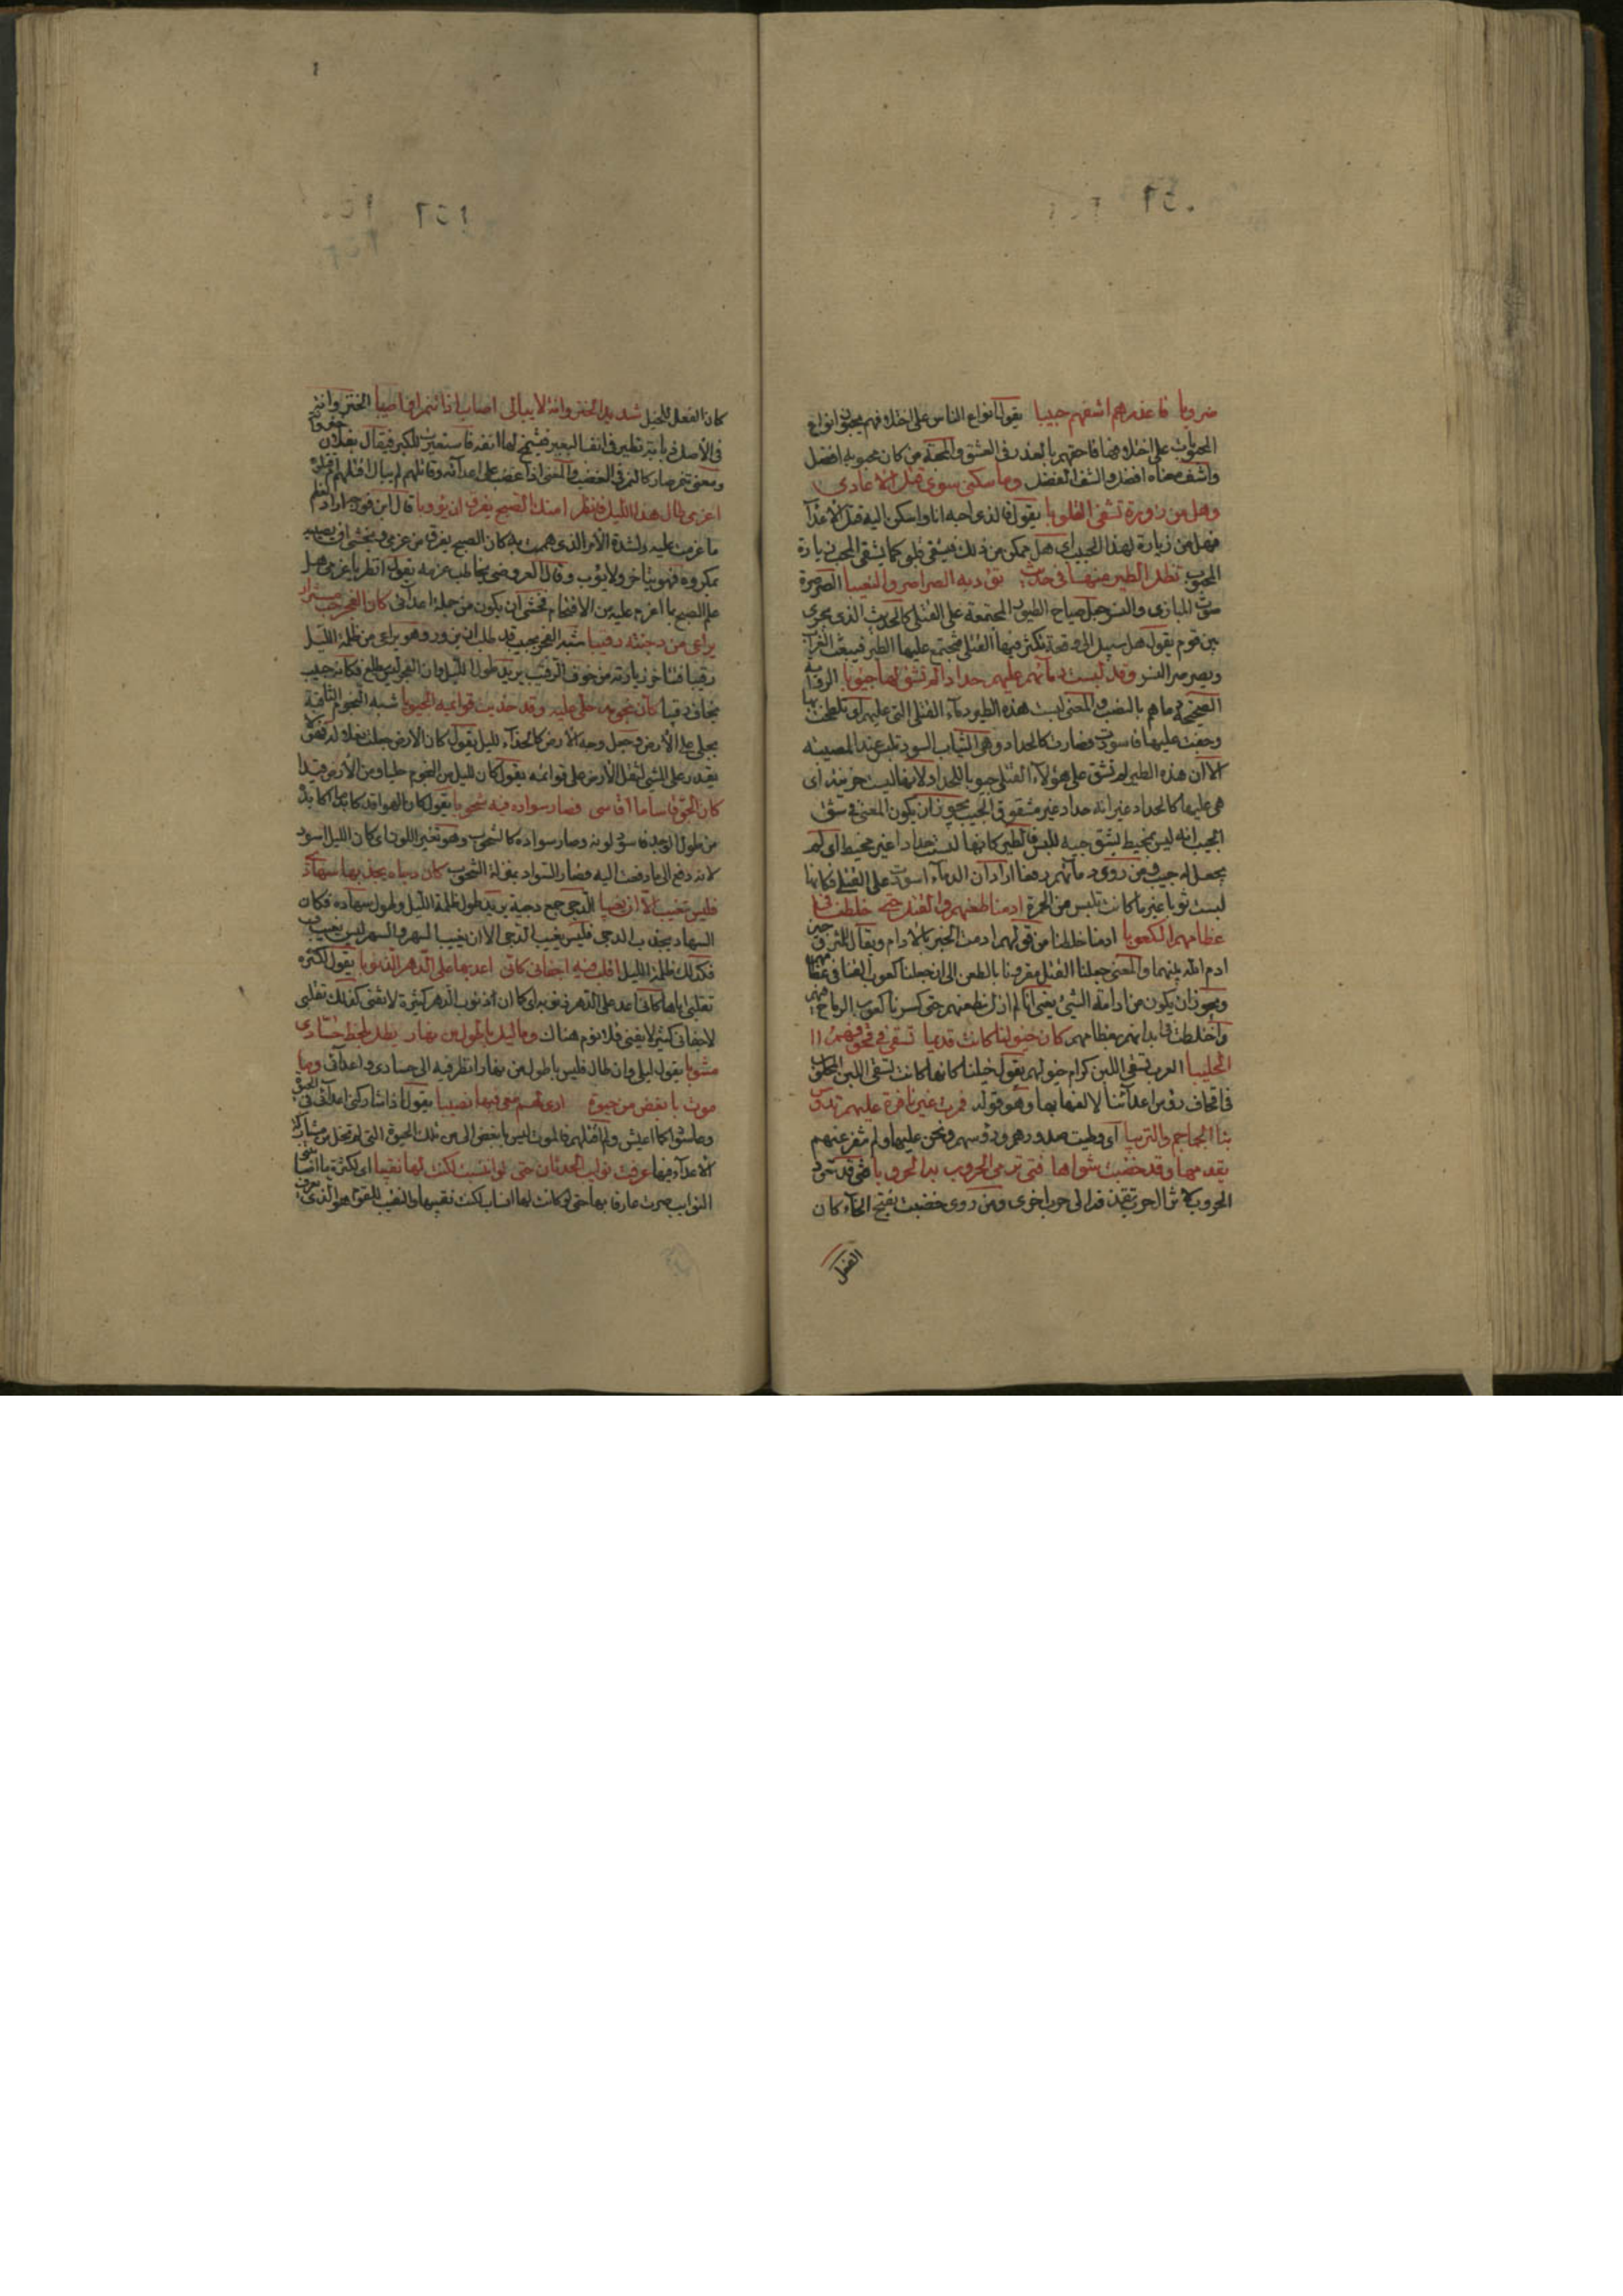 ضروبا فاعذرهم اشفهم حبيبا يقول انواع الناس على اختلافهم يحبون انواع
المحبوبات على اختلافها فاحقهم بالعذر في العشق والمحبة من كان محبوبه افضل
واشف معناه افضل والشف الفضل وما سكنى سوى قتل الاعادى
وهل من زورة تشفى القلوبا يقول فالذى احبه انا واسكن اليه قتل الاعدآ
فهل من زيارة لهذا الحبيب اى هل ممكن من ذلك فيشفى قلبى كما يشفى المحب زيارة
المحبوب تظل الطير منها فى حديث تردبه الصراصر والنعيبا الصرصرة
صوت البازى والنسر جعل صياح الطيور المجتمعة على القتلى كالحديث الذى يجرى
بين قوم يقول هل سبيل الى وقعة تكثر فيها القتلى فتجتمع عليها الطير فينعب الغراب
ويصرصر النسر وقد لبست دمآئهم عليهم حدادا لم تشق لها جيوبا الرواية
الصحيحة دماهم بالنصب والمعنى لبست هذه الطيور دمآء القتلى التى عليهم اى تلطخت بها
وجفت عليها فاسودت فصارت كالحداد وهى الثياب السود تلبس عند المصيبة
الا ان هذه الطير لم تشق على هؤلآء القتلى جيوبا للحداد لانها ليست حزينة اى
هى عليها كالحداد غير انه حداد غير مشقوق الجيب ويجوز ان يكون المعنى فى شق
الجيب انه ليس بمخيط يشق جيبه للبس فالطير كانها لبست حدادا غير مخيط اى لم
يجعل له جيب ومن روى دمآئهم رفعا اراد ان الدمآء اسودت على القتلى فكانها
لبست ثوبا غير ما كانت تلبس من الحمرة ادمنا طعنهم والقتل حتى خلطنا فى
عظامهم الكعوبا ادمنا خلطنا من قولهم ادمت الخبز بالادام ويقال للمتزوجين
ادم الله بينهما والمعنى جعلنا القتل مقرونا بالطعن الى ان جعلنا كعوب القنا فى عظامهم
ويجوز ان يكون من ادامة الشئ يعنى انا لم ازل نطعنهم حتى كسرنا كعوب الرماح فيهم
واختلطت فى ابدانهم بعظامهم كان خيولنا كانت قديما تسقى فى قحوفهم
الحليبا العرب تسقى اللبن كرام خيولهم يقول خيلنا كانها كانت تسقى اللبن المحلوب
فى اقحاف رؤس اعدآئنا لالفها بها وهو قوله فمرت غير نافرة عليهم تدوس
بنا الجماجم والتريبا اى وطيت صدورهم ورؤسهم ونحن عليها ولم تنفر عنهم
يقدمها وقد خضبت شواها فتى ترمى الحروب به الحروبا فتى قد تعود
الحروب كان الحرب تقذفه الى حرب اخرى ومن روى خضبت بفتح الخآء كان
الفعل
كان الفعل للخيل شديد الخنزوانة لا يبالى اصاب اذا تنمر ام اصيبا الخنزوانة
فى الاصل ذبابة تطير فى انف البعير فيشمخ لها انفه فاستعيرت للكبر فيقال بفلان خنزوانة
ومعنى تنمر صار كالنمر فى الغضب والمعنى اذا غضب على اعدآئه وقاتلهم لم يبال اقتلهم ام قتلوه
اعزمى طال هذا الليل فانظر امنك الصبح يفرق ان يؤوبا قال ابن فورجه اراد لعظم
ما عزمت عليه ولشدة الامر الذى هممت به كان الصبح يفرق من عزمى ويخشى ان يصيبه
بمكروه فهو يتاخر ولا يؤب وقال العروضى يخاطب عزمه يقول انظر يا عزمى هل
علم الصبح بما اعزم عليه من الاقتحام فخشى ان يكون من جملة اعدآئى كان الفجر حب مستزار
يراعى من دجنته رقيبا شبه الفجر بحبيب قد طلب ان يزور وهو يراعى من ظلمة الليل
رقيبا فتاخر زيارته من خوف الرقيب يريد طول الليل وان الفجر ليس يطلع فكانه حبيب
يخاف رقيبا كان نجومه حلى عليه وقد حذيت قوائمه الجبوبا شبه النجوم الثاقبة
بحلى على الارض وجعل وجه الارض كالحذآء لليل يقول كان الارض جعلت نعلا له فهو لا
يقدر على المشى لثقل الارض على قوائمه يقول كان لليل من النجوم حليا ومن الارض قيدا
كان الجو قاسى ما اقاسى فصار سواده فيه شحوبا يقول كان الهوا قد كابد ما اكابده
من طول الوجد فاسود لونه وصار سواده كالشحوب وهو تغير اللون اى كان الليل اسود
لانه دفع الى ما دفعت اليه فصار السواد بمنزلة الشحوب كان دجاه يجذبها سهادى
فليس تغيب الا ان يغيبا الدجى جمع دجية يريد طول ظلمة الليل وطول سهاده فكان
السهاد يجذب الدجى فليس يغيب الدجى الا ان يغيب السهر والسهر ليس يغيب
فكذلك ظلمة الليل اقلب فيه اجفانى كانى اعد بها على الدهر الذنوبا يقول لكثرة
تقلبى اياها كانى اعد على الدهر ذنوبه اى كما ان ذنوب الدهر كثيرة لا تفنى كذلك تقلبى
لاجفانى كثير لا يفنى فلا نوم هناك وما ليل باطول من نهار يظل بلحظ حسادى
مشوبا يقول ليلى وان طال فليس باطول من نهار انظر فيه الى حسادى واعدآئى وما
موت بابغض من حيوة ارى لهم معى فيها نصيبا يقول اذا شاركنى اعدآئى فى الحيوة
وعاشوا كما اعيش ولم اقتلهم فالموت ليس بابغض الى من تلك الحيوة التى لم تخل من مشاركة
الاعدآء فيها عرفت نوايب الحدثان حتى لو انتسبت لكنت لها نقيبا اى لكثرة ما اصابتنى
النوايب صرت عارفا بها حتى لو كانت لها انساب لكنت نقيبها والنقيب للقوم هو الذى يعرف